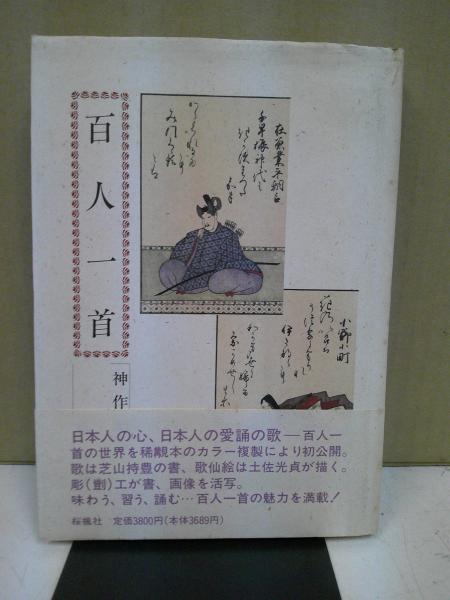 百人一首
神作
在原業平朝臣
千早振神代も
小野小町
日本人の心、日本人の愛誦の歌―百人一
首の世界を稀覯本のカラー複製により初公開。
歌は芝山持豊の書、歌仙絵は土佐光貞が描く。
彫(劃)工が書、画像を活写。
味わう、習う、誦む…百人一首の魅力を満載!
桜楓社 定価3800円(本体3689円)